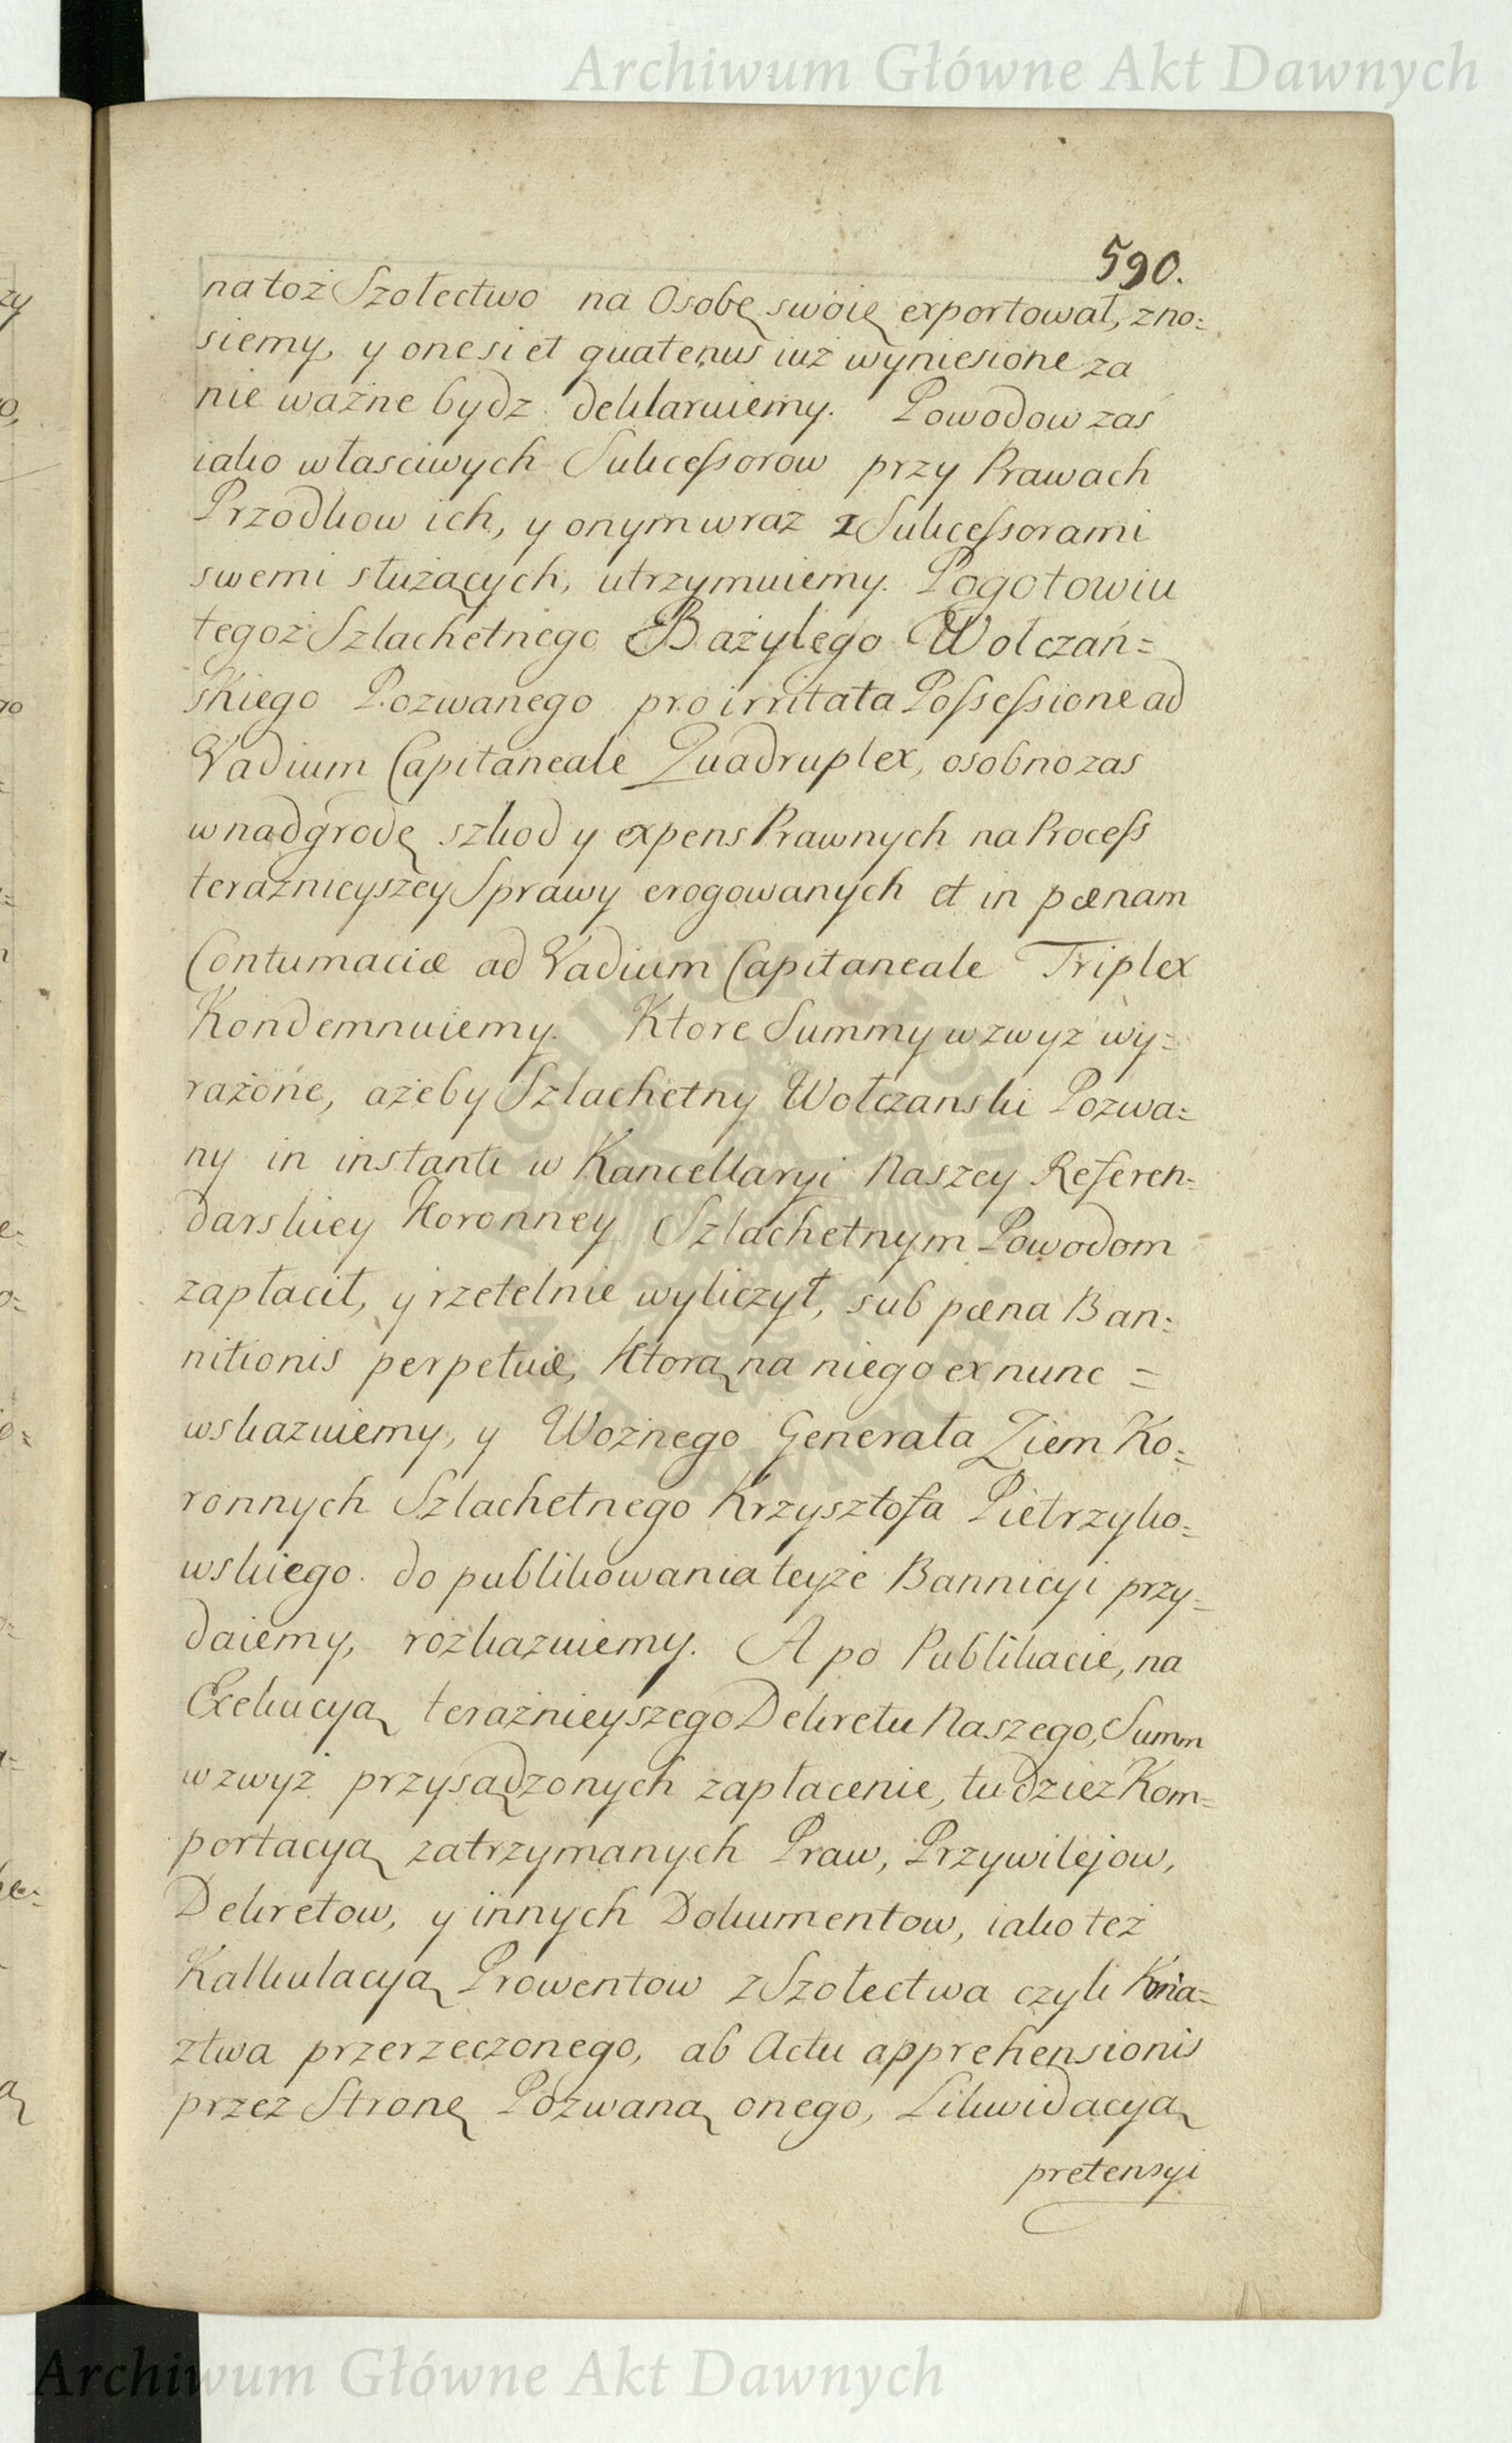 Archiwum Główne Akt Dawnych
590.
na toż Szołectwo na Osobę swoię exportował, zno=
siemy, y one si et quatenus iuż wyniesione za
nie ważne bydz deklaruiemy. Powodow zaś
iako własciwych Sukcessorow przy Prawach
Przodkow ich, y onym wraz z Sukcessorami
swemi służących, utrzymuiemy. Pogotowiu
tegoż Szlachetnego Bazylego Wołczań=
skiego Pozwanego pro irritata Possessione ad
Vadium Capitaneale Quadruplex, osobno zas
w nadgrodę szkod y expens Prawnych na Process
teraznieyszey Sprawy erogowanych et in pœnam
Contumaciæ ad Vadium Capitaneale Triplex
Kondemnuiemy. Ktore Summy wzwyż wy=
rażone, ażeby Szlachetny Wołczanski Pozwa=
ny in instanti w Kancellaryi Naszey Referen=
darskiey Koronney Szlachetnym Powodom
zapłacił, y rzetelnie wyliczył, sub pœna Ban=
nitionis perpetuæ, ktorą na niego ex nunc =
wskazuiemy, y Woźnego Generała Ziem Ko=
ronnych Szlachetnego Krzysztofa Pietrzyko=
wskiego do publikowania teyże Bannicyi przy=
daiemy, rozkazuiemy. A po Publikacie, na
Exekucyą teraźnieyszego Dekretu Naszego, Summ
wzwyż przysądzonych zapłacenie, tudzież Kom=
portacyą zatrzymanych Praw, Przywilejow,
Dekretow, y innych Dokumentow, iako też
Kalkulacyą Prowentow z Szołectwa czyli Knia=
ztwa przerzeczonego, ab Actu apprehensionis
przez Stronę Pozwaną onego, Likwidacyą
pretensyi
Archiwum Główne Akt Dawnych